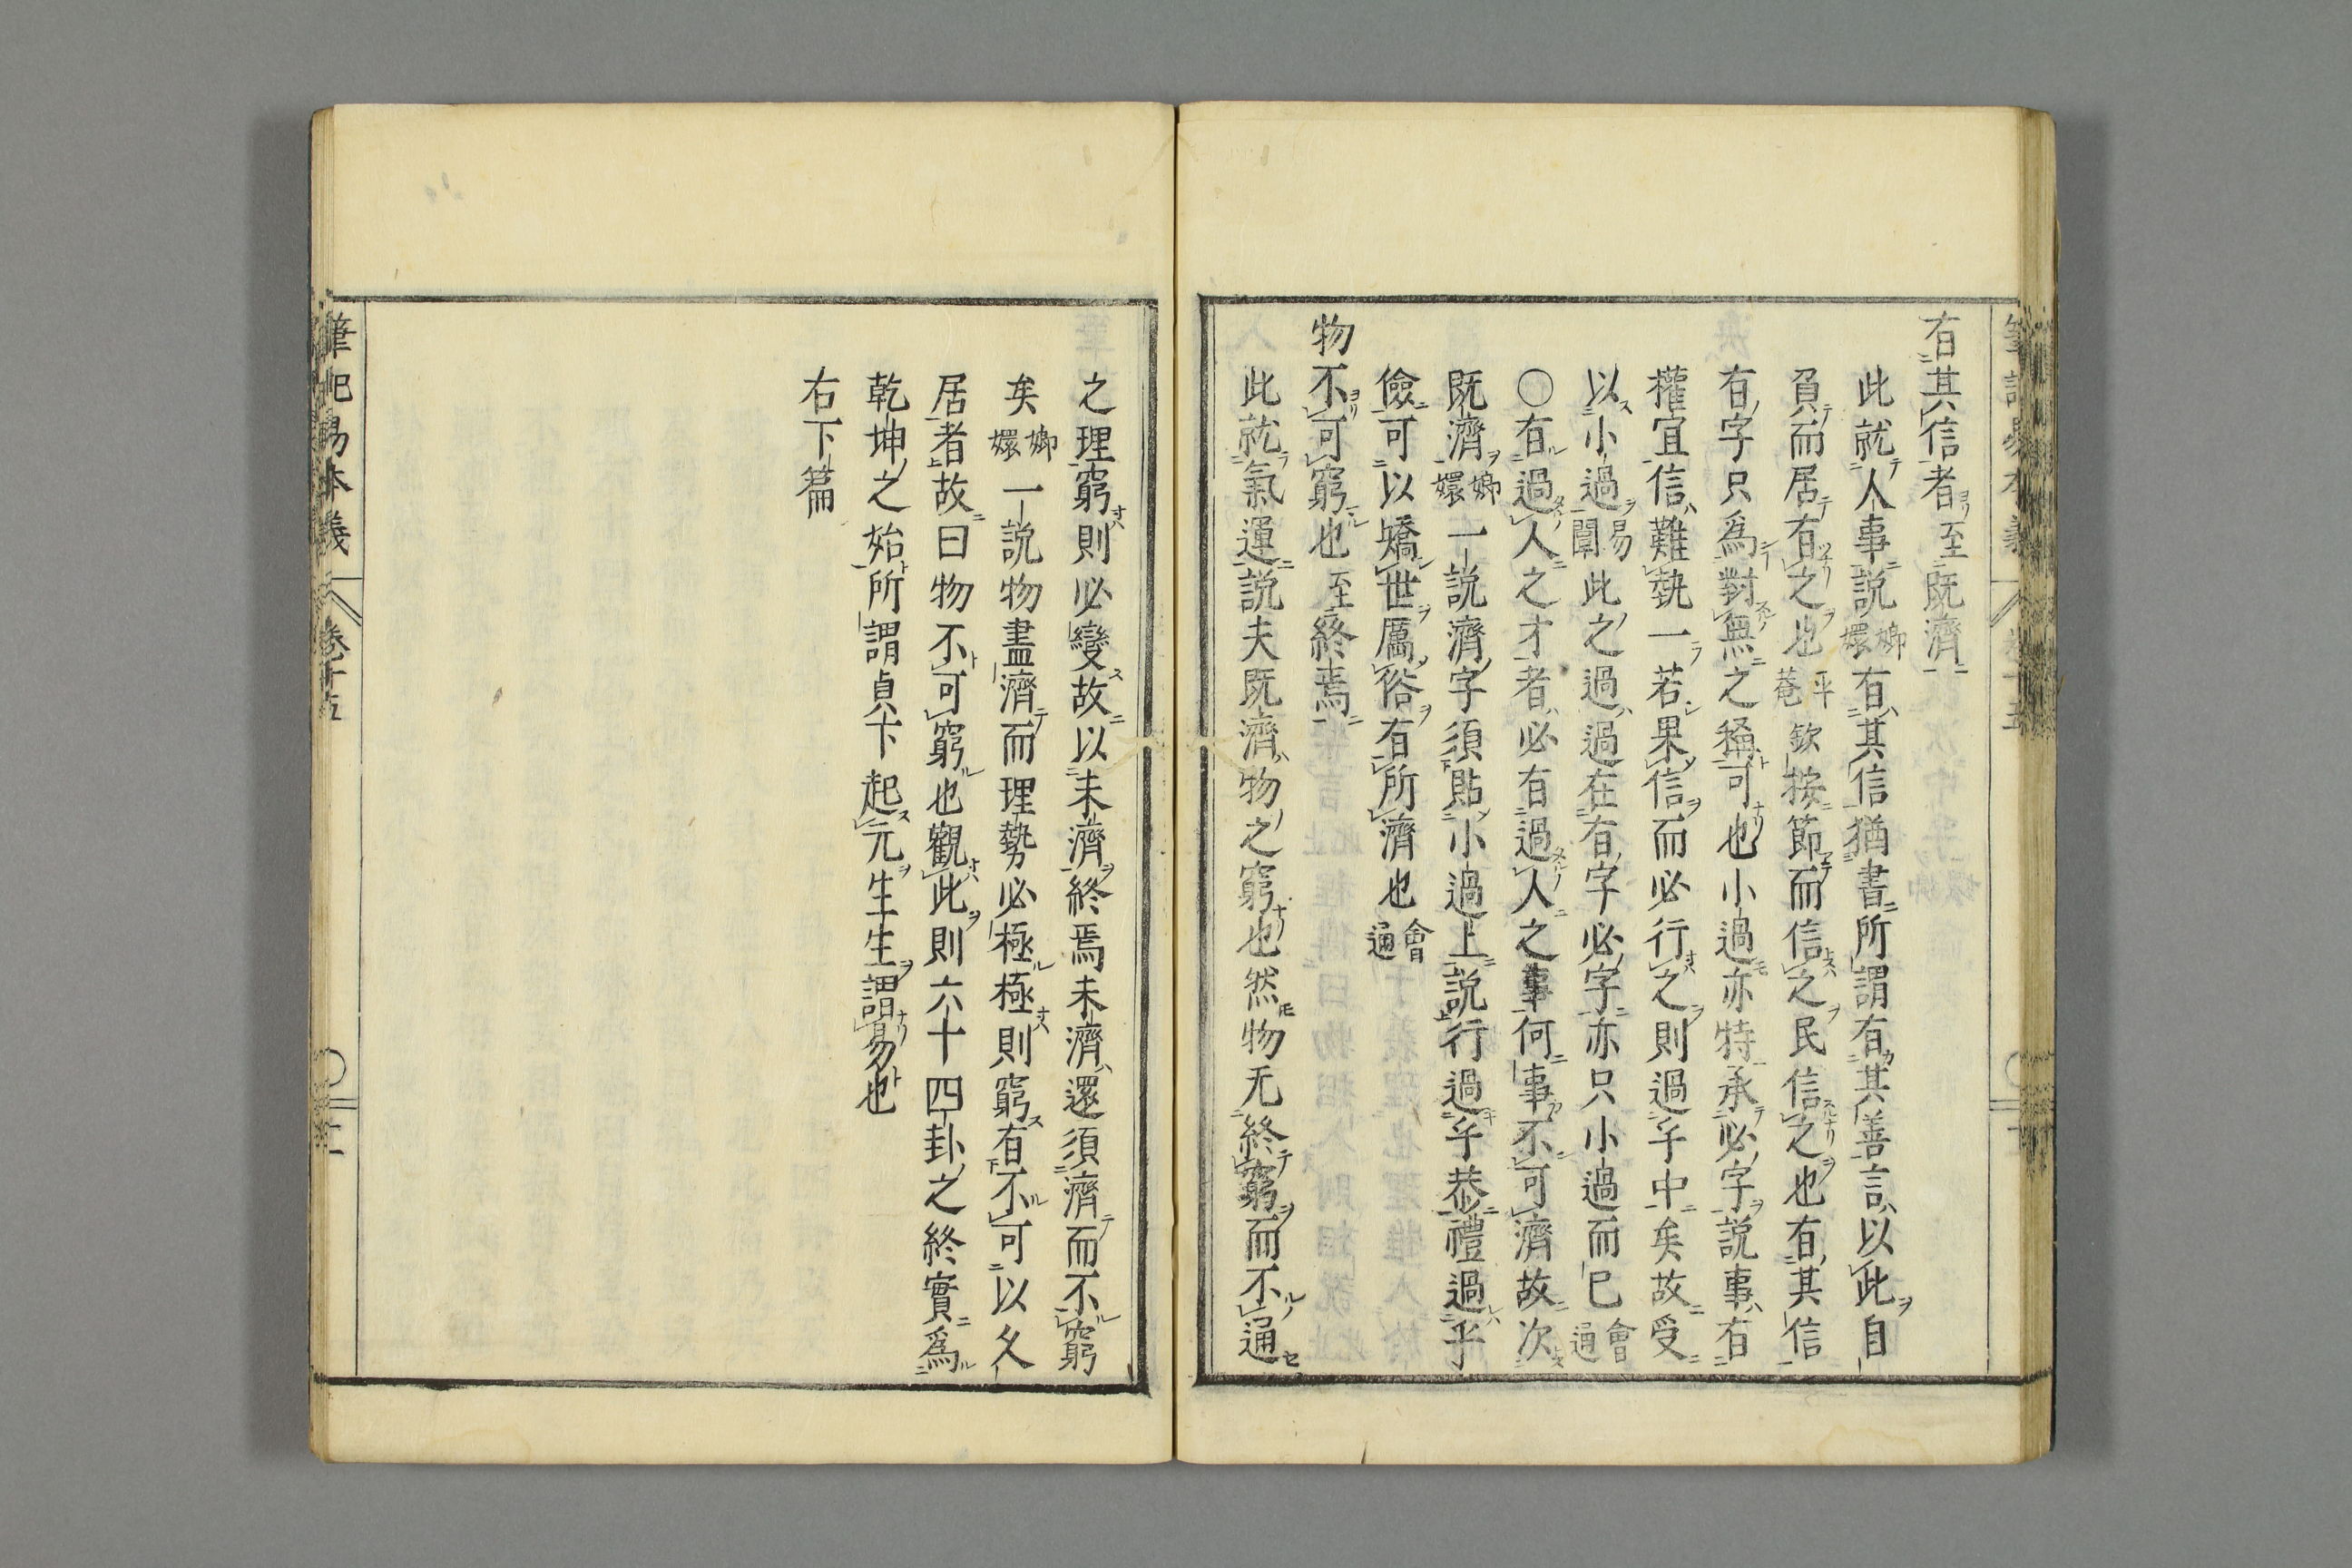 有其信者至既濟
此就人事説嫏嬛有其信猶書所謂有其善言以此自
負而居有之也平菴欽按節而信之民信之也有其信
有字只爲對無之稱可也小過亦特承必字説事有
權宜信難執一若果信而必行之則過乎中矣故受
以小過易闡此之過過在有字必字亦只小過而已會通
〇有過人之才者必有過人之事何事不可濟故次
既濟嫏嬛一説濟字須貼小過上説行過乎恭禮過乎
儉可以矯世厲俗有所濟也會通
物不可窮也至終焉
此就氣運説夫既濟物之窮也然物无終窮而不通
之理窮則必變故以未濟終焉未濟還須濟而不窮
矣嫏嬛一説物盡濟而理勢必極極則窮有不可以久
居者故曰物不可窮也觀此則六十四卦之終實爲
乾坤之始所謂貞下起元生生謂易也
右下篇
筆記易本義 卷十五